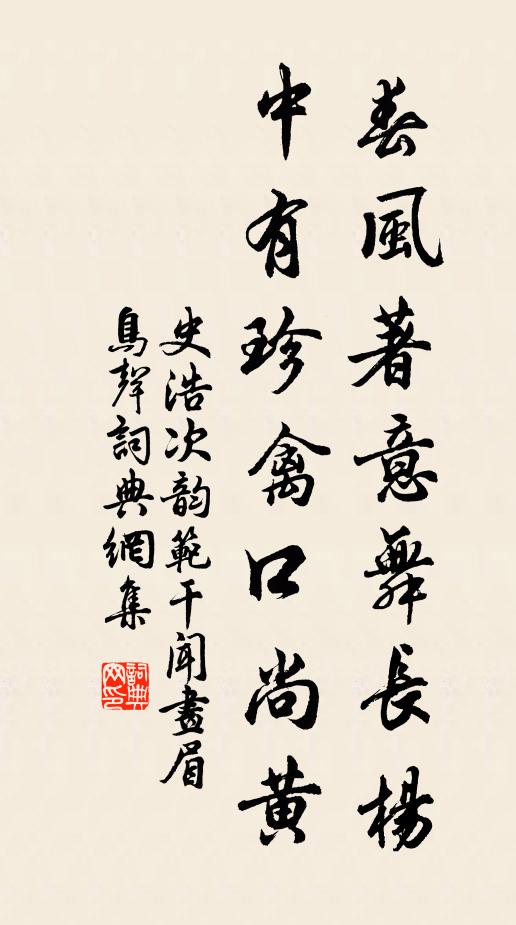 春風著意舞長楊
中有珍禽口尚黃
史浩次韵範干聞畫眉
鳥聲詞典網集
詞典網印